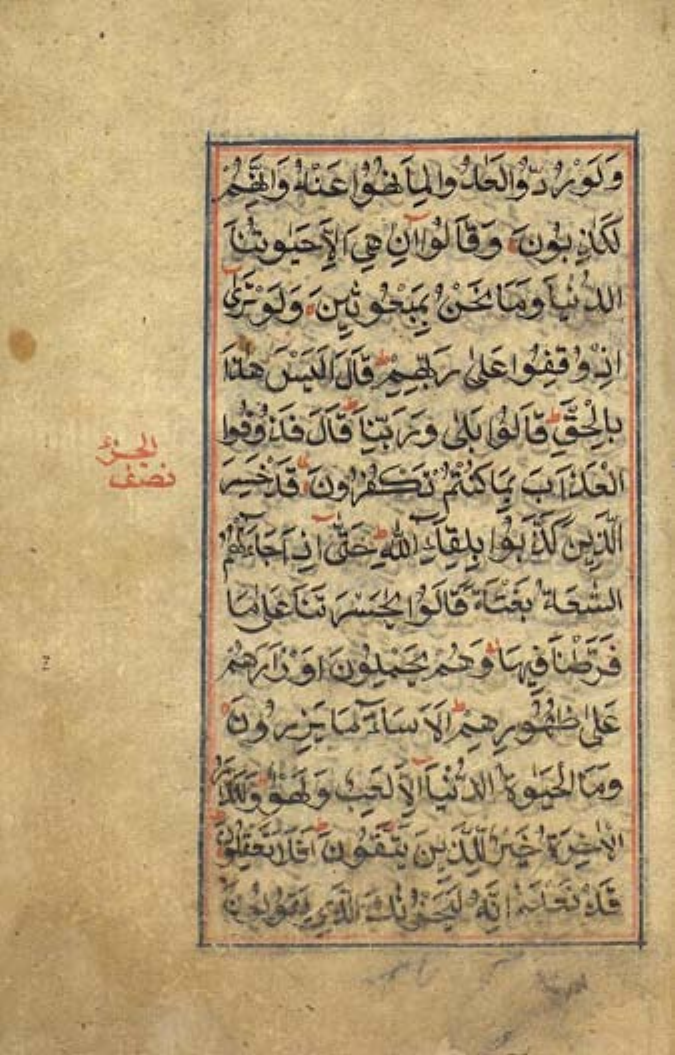 وَلَوْ رُدُّوا لَعَادُوا لِمَا نُهُوا عَنْهُ وَاِنَّهُمْ
لَكٰذِبُونَ وَقَالُوا اِنْ هِيَ اِلَّا حَيٰوتُنَا
الدُّنْيَا وَمَا نَحْنُ بِمَبْعُوثِينَ وَلَوْ تَرٰى
اِذْ وُقِفُوا عَلٰى رَبِّهِمْ قَالَ اَلَيْسَ هٰذَا
بِالْحَقِّ قَالُوا بَلٰى وَرَبِّنَا قَالَ فَذُوقُوا
الْعَذَابَ بِمَا كُنْتُمْ تَكْفُرُونَ قَدْ خَسِرَ
الَّذِينَ كَذَّبُوا بِلِقَاءِ اللّٰهِ حَتّٰى اِذَا جَاءَتْهُمُ
السَّاعَةُ بَغْتَةً قَالُوا يٰحَسْرَتَنَا عَلٰى مَا
فَرَّطْنَا فِيهَا وَهُمْ يَحْمِلُونَ اَوْزَارَهُمْ
عَلٰى ظُهُورِهِمْ اَلَا سَاءَ مَا يَزِرُونَ
وَمَا الْحَيٰوةُ الدُّنْيَا اِلَّا لَعِبٌ وَلَهْوٌ وَلَلدَّارُ
الْاٰخِرَةُ خَيْرٌ لِلَّذِينَ يَتَّقُونَ اَفَلَا تَعْقِلُونَ
قَدْ نَعْلَمُ اِنَّهُ لَيَحْزُنُكَ الَّذِي يَقُولُونَ
الجزء
نصف